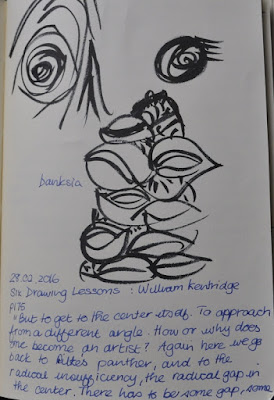 banksia
28.02 2016
Six Drawing Lessons : William Kentridge
p175
"But to get to the center itself. To approach
from a different angle. How or why does
one become an artist? Again here we go
back to Rilke's panther, and to the
radical insufficiency, the radical gap in
the center. There has to be some gap, some